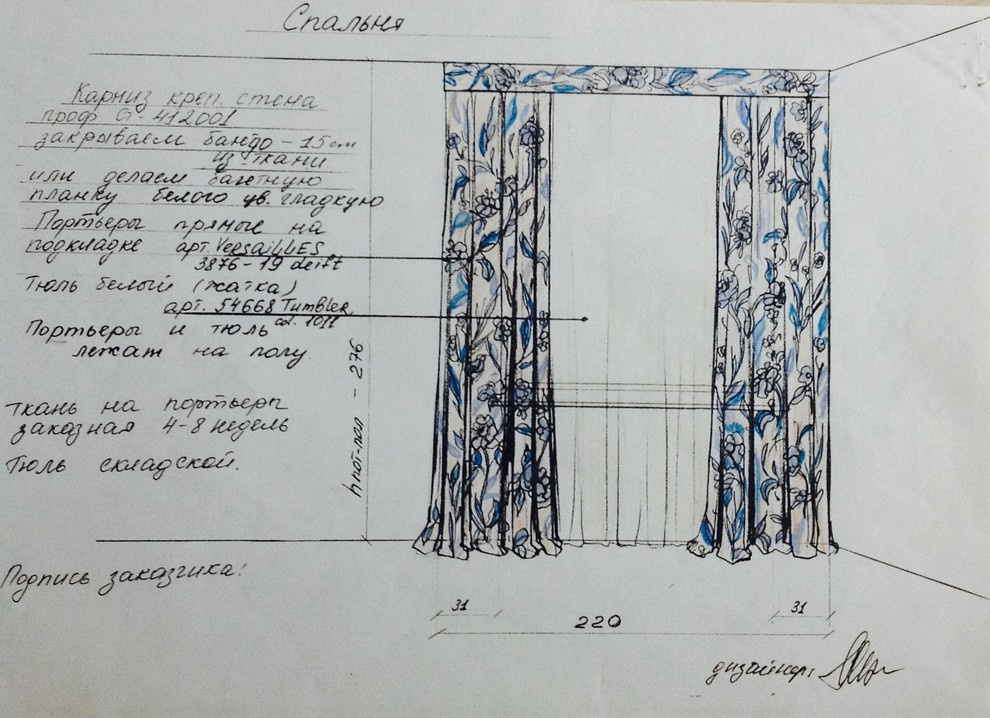 Спальня
Карниз креп. стена
проф Ст. 412001
закрываем бандо - 15 cm
из ткани
или делаем багетную
планку белого цв. гладкую
Портьеры прямые на
подкладке арт. VersaiLLES
3876-19 delft
Тюль белый (жатка)
арт. 54668 Tumbler
col. 1011
Портьеры и тюль
лежат на полу.
h пот-пол - 276
Ткань на портьеры
заказная 4-8 недель
Тюль складской.
Подпись заказчика:
31
31
220
дизайнер: